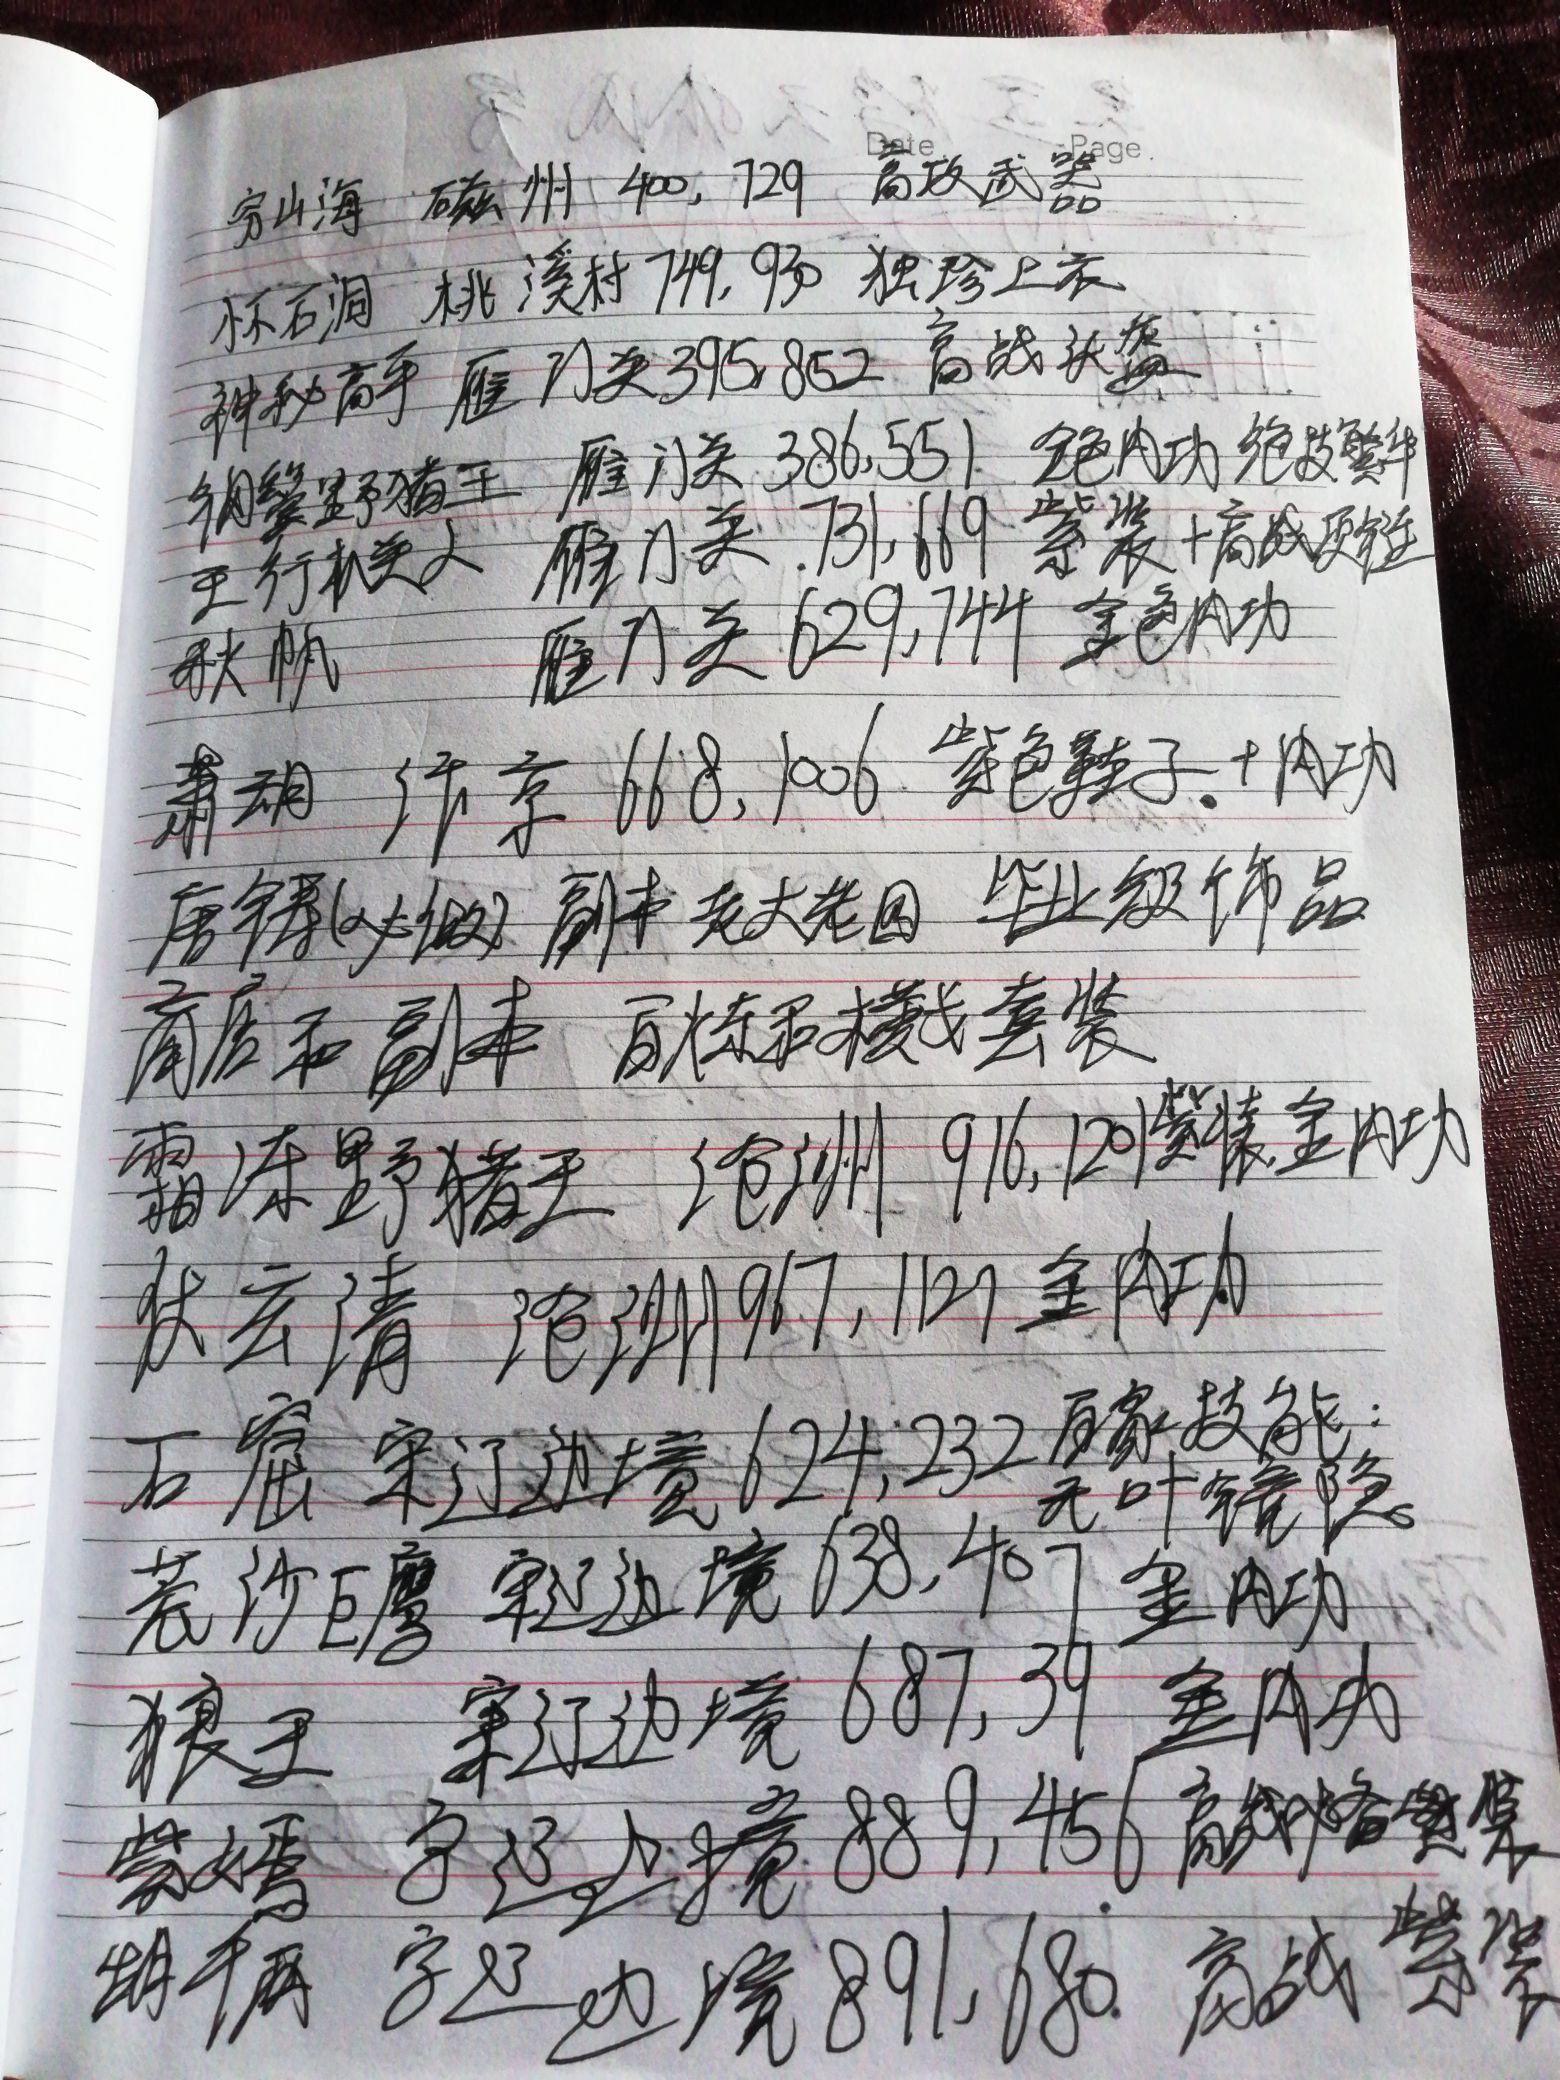 Date Page
穷山海 磁州 400,729 高攻武器
怀石洞 桃溪村 749,930 独珍上衣
神秘高手 雁门关 395,852 高战头盔
钢鬃野猪王 雁门关 386,551 金色内功 绝技繁华
五行机关人 雁门关 731,669 紫装+高战项链
秋帆 雁门关 629,744 金色内功
萧胡 汴京 668,1006 紫色鞋子.+内功
唐铸(必做) 副本 老大老四 毕业级饰品
商店和副本 百炼和模战套装
霜冻野猪王 沧洲 916,1201 紫装.金内功
狄云清 沧洲 967,1127 金内功
石窟 宋辽边境 624,232 百家技能:
无叶镜隐。
荒沙巨鹰 宋辽边境 638,407 金内功
狼王 宋辽边境 687,39 金内功
边境 889,456 高战 紫装
胡千 宋辽边境 891,680. 高战 紫装